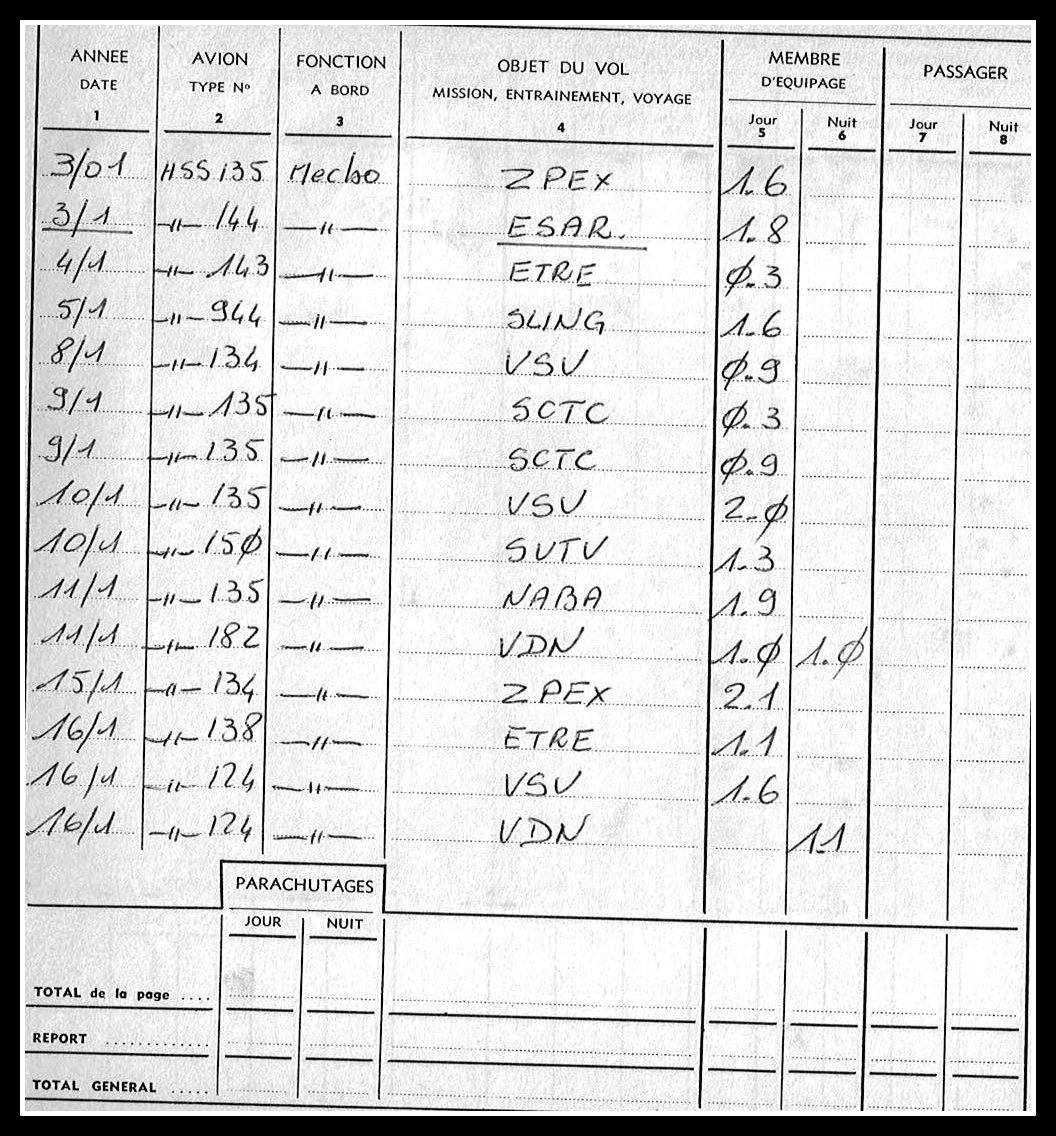 ANNEE AVION FONCTION OBJET DU VOL MEMBRE PASSAGER
DATE TYPE N° A BORD MISSION, ENTRAINEMENT, VOYAGE D'EQUIPAGE
1 2 3 4 Jour 5 Nuit 6 Jour 7 Nuit 8
3/01 HSS 135 Mecbo ZPEX 1.6
3/1 -〃- 144 -〃- ESAR. 1.8
4/1 -〃- 143 -〃- ETRE Ø.3
5/1 -〃- 944 -〃- SLING 1.6
8/1 -〃- 134 -〃- VSV Ø.9
9/1 -〃- 135 -〃- SCTC Ø.3
9/1 -〃- 135 -〃- SCTC Ø.9
10/1 -〃- 135 -〃- VSV 2.Ø
10/1 -〃- 15Ø -〃- SVTV 1.3
11/1 -〃- 135 -〃- NABA 1.9
11/1 -〃- 182 -〃- VDN 1.Ø 1.Ø
15/1 -〃- 134 -〃- ZPEX 2.1
16/1 -〃- 138 -〃- ETRE 1.1
16/1 -〃- 124 -〃- VSV 1.6
16/1 -〃- 124 -〃- VDN 1.1
PARACHUTAGES
JOUR NUIT
TOTAL de la page ....
REPORT ............
TOTAL GENERAL .....